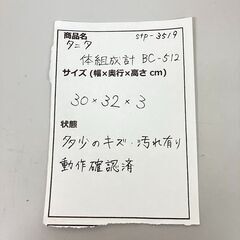 商品名 stp-3519
タニタ
体組成計 BC-512
サイズ (幅×奥行×高さ cm)
30×32×3
状態
多少のキズ・汚れ有り
動作確認済